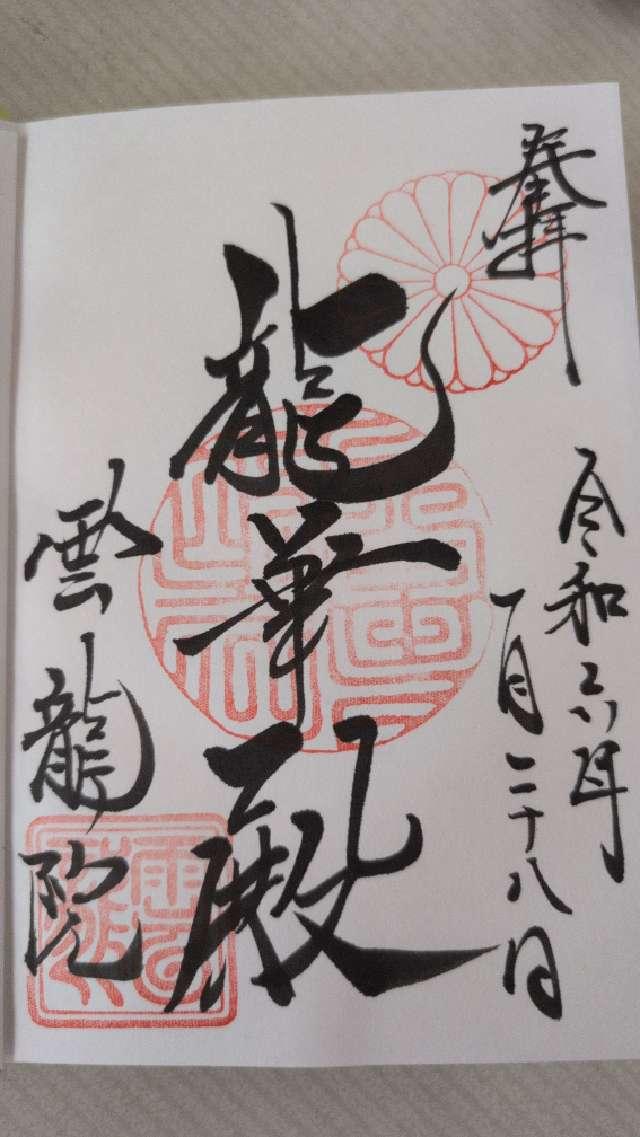 奉拝
令和六年
一月二十八日
龍華殿
雲龍院